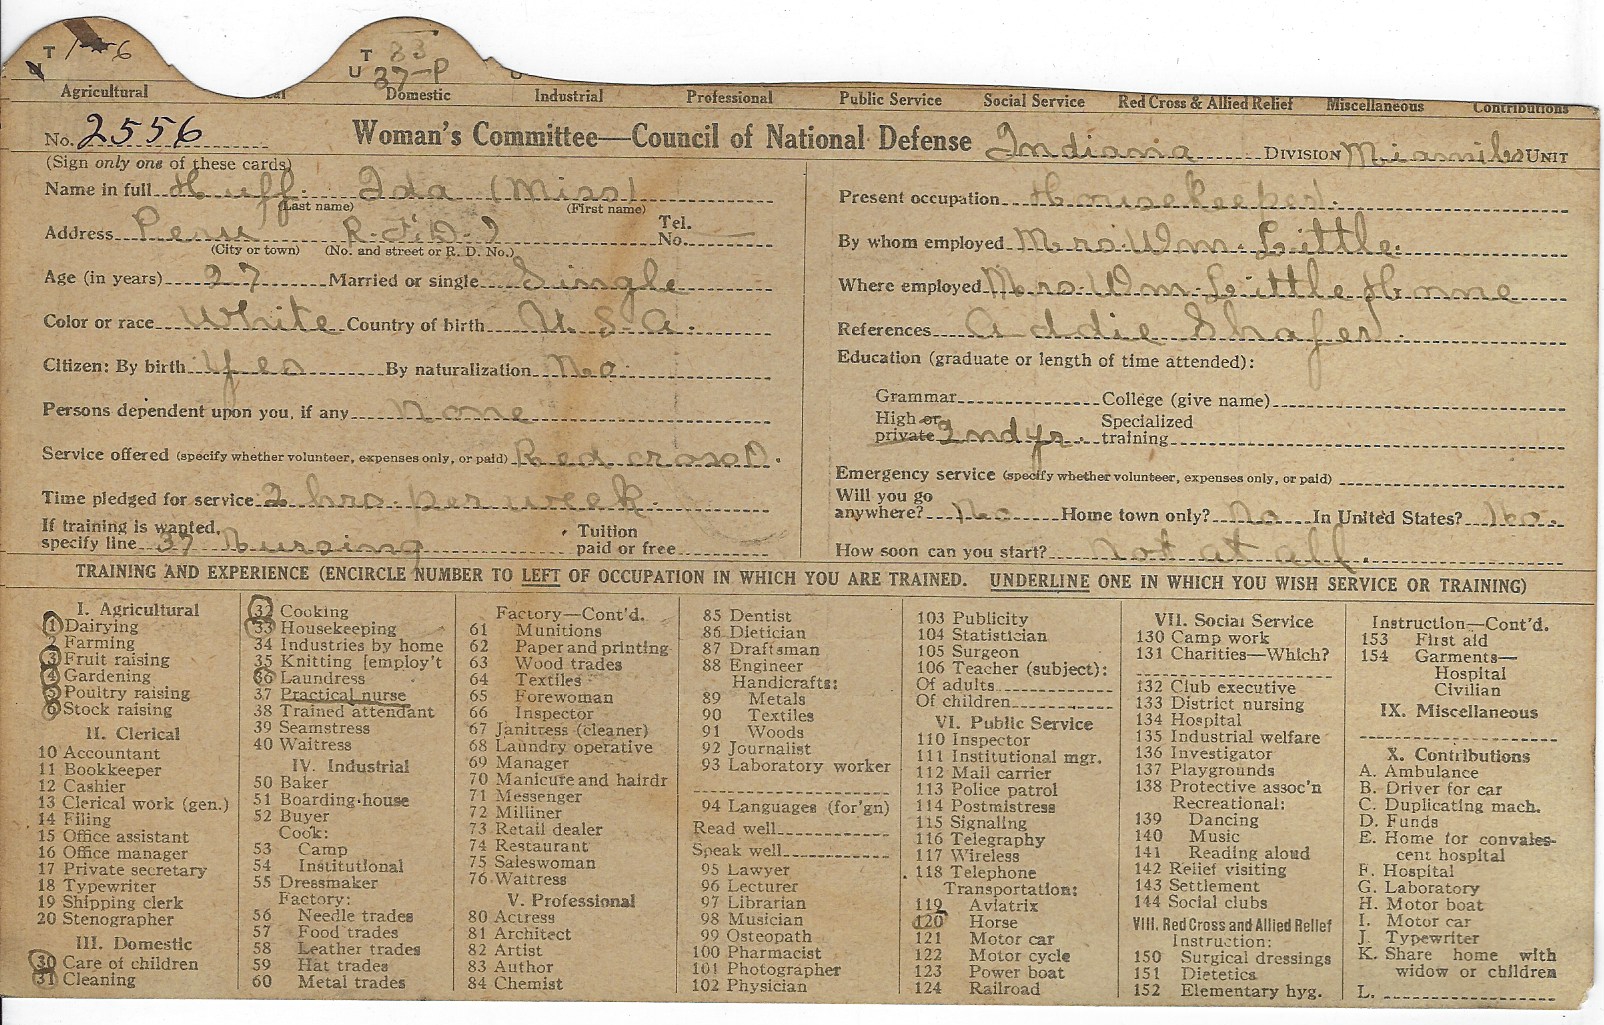 T 1-6 T 33
U 37-P
Agricultural Domestic Industrial Professional Public Service Social Service Red Cross & Allied Relief Miscellaneous Contributions
No. 2556 Woman's Committee—Council of National Defense Indiana DIVISION Miami UNIT
(Sign only one of these cards)
Name in full Huff Ida (Miss)
(Last name) (First name)
Address Peru R.F.D. Tel. No.
(City or town) (No. and street or R. D. No.)
Age (in years) 27 Married or single Single
Color or race White Country of birth U.S.A.
Citizen: By birth Yes By naturalization No
Persons dependent upon you, if any none
Service offered (specify whether volunteer, expenses only, or paid) Red cross
Time pledged for service 2 hrs. per week.
If training is wanted, specify line 37 Nursing Tuition paid or free
Present occupation Housekeeper.
By whom employed Mrs. Wm. Little.
Where employed Mrs. Wm. Little Home
References Addie Shafer.
Education (graduate or length of time attended):
Grammar College (give name)
High or private 2nd yr. Specialized training
Emergency service (specify whether volunteer, expenses only, or paid)
Will you go anywhere? No Home town only? No In United States? No.
How soon can you start? not at all.
TRAINING AND EXPERIENCE (ENCIRCLE NUMBER TO LEFT OF OCCUPATION IN WHICH YOU ARE TRAINED. UNDERLINE ONE IN WHICH YOU WISH SERVICE OR TRAINING)
I. Agricultural
1 Dairying
2 Farming
3 Fruit raising
4 Gardening
5 Poultry raising
6 Stock raising
II. Clerical
10 Accountant
11 Bookkeeper
12 Cashier
13 Clerical work (gen.)
14 Filing
15 Office assistant
16 Office manager
17 Private secretary
18 Typewriter
19 Shipping clerk
20 Stenographer
III. Domestic
30 Care of children
31 Cleaning
32 Cooking
33 Housekeeping
34 Industries by home
35 Knitting [employ't
36 Laundress
37 Practical nurse
38 Trained attendant
39 Seamstress
40 Waitress
IV. Industrial
50 Baker
51 Boarding-house
52 Buyer
Cook:
53 Camp
54 Institutional
55 Dressmaker
Factory:
56 Needle trades
57 Food trades
58 Leather trades
59 Hat trades
60 Metal trades
Factory—Cont'd.
61 Munitions
62 Paper and printing
63 Wood trades
64 Textiles
65 Forewoman
66 Inspector
67 Janitress (cleaner)
68 Laundry operative
69 Manager
70 Manicure and hairdr
71 Messenger
72 Milliner
73 Retail dealer
74 Restaurant
75 Saleswoman
76 Waitress
V. Professional
80 Actress
81 Architect
82 Artist
83 Author
84 Chemist
85 Dentist
86 Dietician
87 Draftsman
88 Engineer
Handicrafts:
89 Metals
90 Textiles
91 Woods
92 Journalist
93 Laboratory worker
94 Languages (for'gn)
Read well
Speak well
95 Lawyer
96 Lecturer
97 Librarian
98 Musician
99 Osteopath
100 Pharmacist
101 Photographer
102 Physician
103 Publicity
104 Statistician
105 Surgeon
106 Teacher (subject):
Of adults
Of children
VI. Public Service
110 Inspector
111 Institutional mgr.
112 Mail carrier
113 Police patrol
114 Postmistress
115 Signaling
116 Telegraphy
117 Wireless
118 Telephone
Transportation:
119 Aviatrix
120 Horse
121 Motor car
122 Motor cycle
123 Power boat
124 Railroad
VII. Social Service
130 Camp work
131 Charities—Which?
132 Club executive
133 District nursing
134 Hospital
135 Industrial welfare
136 Investigator
137 Playgrounds
138 Protective assoc'n
Recreational:
139 Dancing
140 Music
141 Reading aloud
142 Relief visiting
143 Settlement
144 Social clubs
VIII. Red Cross and Allied Relief
Instruction:
150 Surgical dressings
151 Dietetics
152 Elementary hyg.
Instruction—Cont'd.
153 First aid
154 Garments—
Hospital
Civilian
IX. Miscellaneous
X. Contributions
A. Ambulance
B. Driver for car
C. Duplicating mach.
D. Funds
E. Home for convales-
cent hospital
F. Hospital
G. Laboratory
H. Motor boat
I. Motor car
J. Typewriter
K. Share home with
widow or children
L.